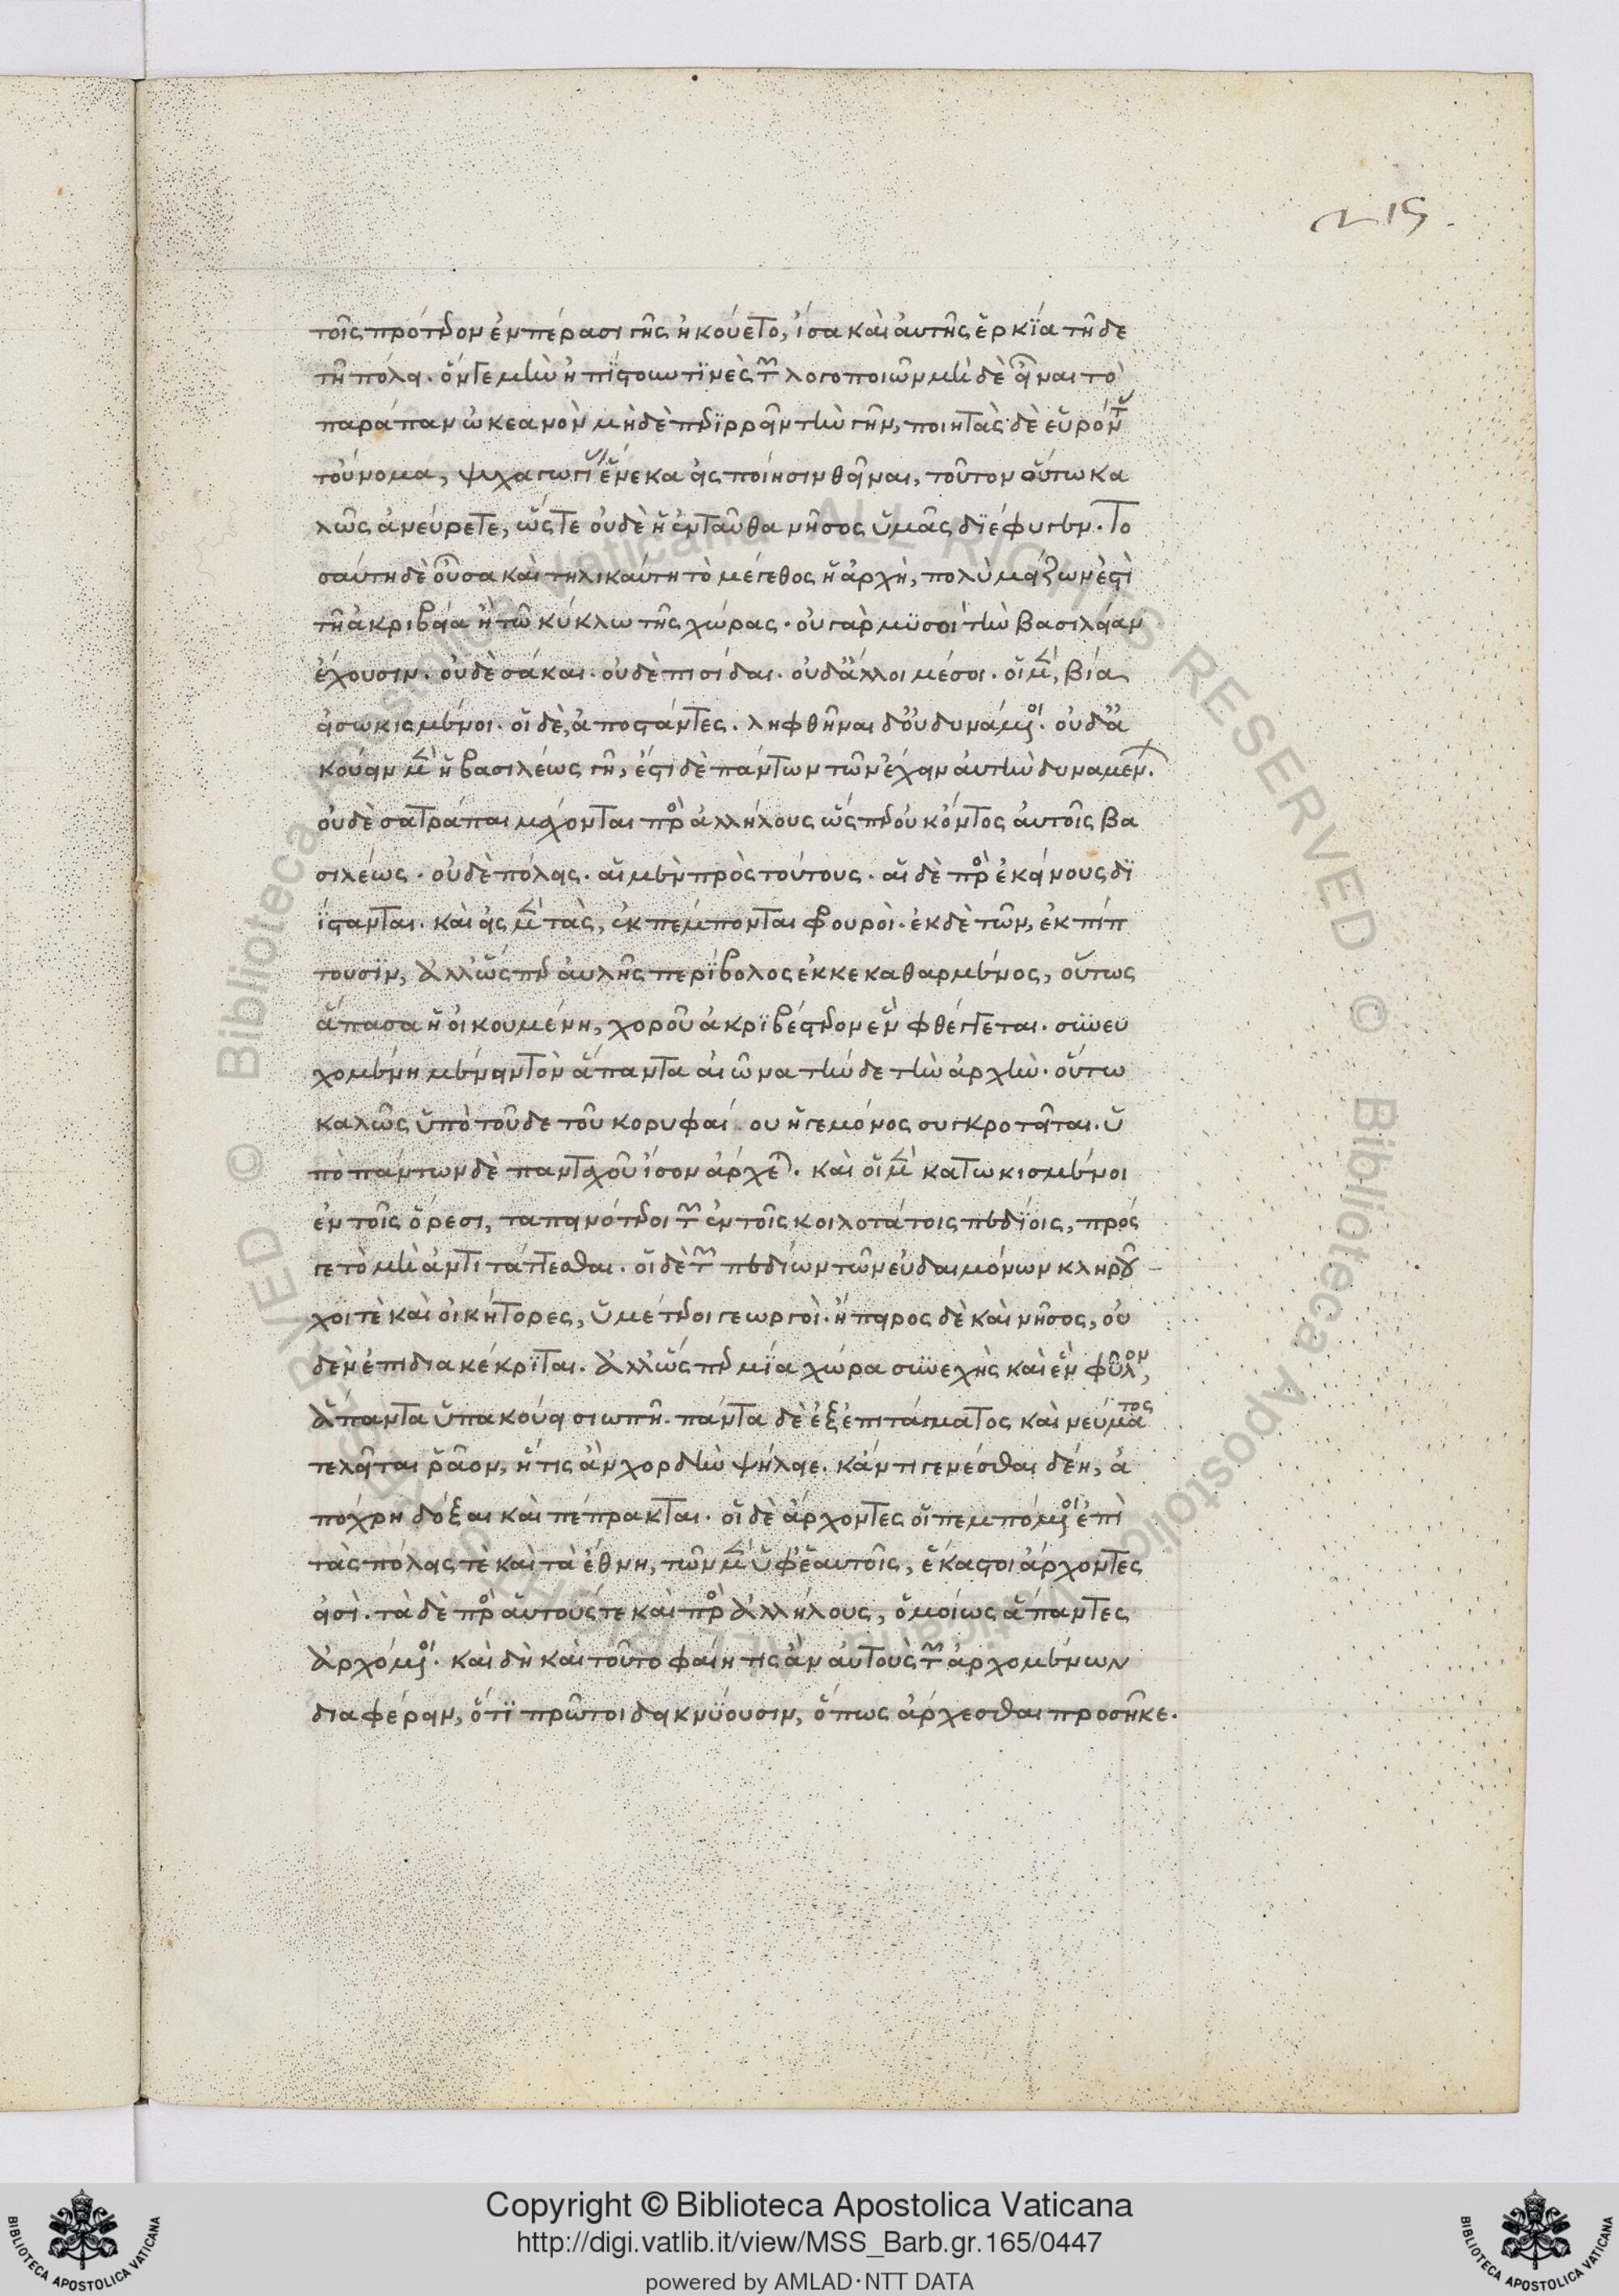 215.
τοῖς πρότερον ἐν πέρασι γῆς ἠκούετο, ἴσα καὶ αὐτῆς ἕρκία τῆδε
τῆ πόλει. ὅν γε μὴν ἠπίστουν τινὲς τῶν λογοποιῶν μὴ δὲ εἶναι τὸ
παράπαν ὠκεανὸν μηδὲ περιρρεῖν τὴν γῆν, ποιητὰς δὲ εὑρόντας
τοὔνομα, ψυχαγωγίας ἕνεκα εἰς ποίησιν θεῖναι, τοῦτον οὕτω κα
λῶς ἀνεύρετε, ὥστε οὐδὲ ἡ ἐνταῦθα νῆσος ὑμᾶς διέφυγεν. το
σαύτη δὲ οὖσα καὶ τηλικαύτη τὸ μέγεθος ἡ ἀρχὴ, πολὺ μείζων ἐστὶ
τῆ ἀκριβεία ἢ τῶ κύκλω τῆς χώρας. οὐ γὰρ μυσοὶ τὴν βασιλείαν
ἔχουσιν. οὐδὲ σάκαι. οὐδὲ πισίδαι. οὐδ' ἄλλοι μέσοι. οἱ μὲν, βία
εἰσωκισμένοι. οἱ δὲ, ἀποστάντες. ληφθῆναι δ' οὐ δυνάμενοι. οὐδ' ἀ
κούειν μὲν ἡ βασιλέως γῆ, ἔστι δὲ πάντων τῶν ἔχειν αὐτὴν δυναμένων.
οὐδὲ σατράπαι μάχονται πρὸς ἀλλήλους ὥσπερ οὐκ ὄντος αὐτοῖς βα
σιλέως. οὐδὲ πόλεις. αἱ μὲν πρὸς τούτους. αἱ δὲ πρὸς ἐκείνους δι
ίστανται. καὶ εἰς μὲν τὰς, ἐκπέμπονται φρουροὶ. ἐκ δὲ τῶν, ἐκπίπ
τουσιν, ἀλλ' ὥσπερ αὐλῆς περίβολος ἐκκεκαθαρμένος, οὕτως
ἅπασα ἡ οἰκουμένη, χοροῦ ἀκριβέστερον ἓν φθέγγεται. συνευ
χομένη μένειν τὸν ἅπαντα αἰῶνα τήνδε τὴν ἀρχὴν. οὕτω
καλῶς ὑπὸ τοῦδε τοῦ κορυφαί ου ἡγεμόνος συγκροτεῖται. ὑ
πὸ πάντων δὲ πανταχοῦ ἴσον ἄρχεται. καὶ οἱ μὲν κατωκισμένοι
ἐν τοῖς ὄρεσι, ταπεινότεροι τῶν ἐν τοῖς κοιλοτάτοις πεδίοις, πρός
γε τὸ μὴ ἀντιτάττεσθαι. οἱ δὲ τῶν πεδίων τῶν εὐδαιμόνων κληροῦ
χοι τὲ καὶ οἰκήτορες, ὑμέτεροι γεωργοὶ. ἤπειρος δὲ καὶ νῆσος, οὐ
δὲν ἐπιδιακέκριται. ἀλλ' ὥσπερ μία χώρα συνεχὴς καὶ ἓν φῦλον,
ἅπαντα ὑπακούει σιωπῆ. πάντα δὲ ἐξ ἐπιτάγματος καὶ νεύματος
τελεῖται ῥᾶον, ἤ τις ἂν χορδὴν ψήλειε. κἄν τι γενέσθαι δέη, ἀ
πόχρη δόξαι καὶ πέπρακται. οἱ δὲ ἄρχοντες οἱ πεμπόμενοι ἐπὶ
τὰς πόλεις τὲ καὶ τὰ ἔθνη, τῶν μὲν ὑφ' ἑαυτοῖς, ἕκαστοι ἄρχοντες
εἰσὶ. τὰ δὲ πρὸς αὑτούς τε καὶ πρὸς ἀλλήλους, ὁμοίως ἅπαντες
ἀρχόμενοι. καὶ δὴ καὶ τοῦτο φαίη τις ἂν αὐτοὺς τῶν ἀρχομένων
διαφέρειν, ὅτι πρῶτοι δεικνύουσιν, ὅπως ἄρχεσθαι προσῆκε.
Copyright © Biblioteca Apostolica Vaticana
http://digi.vatlib.it/view/MSS_Barb.gr.165/0447
powered by AMLAD·NTT DATA